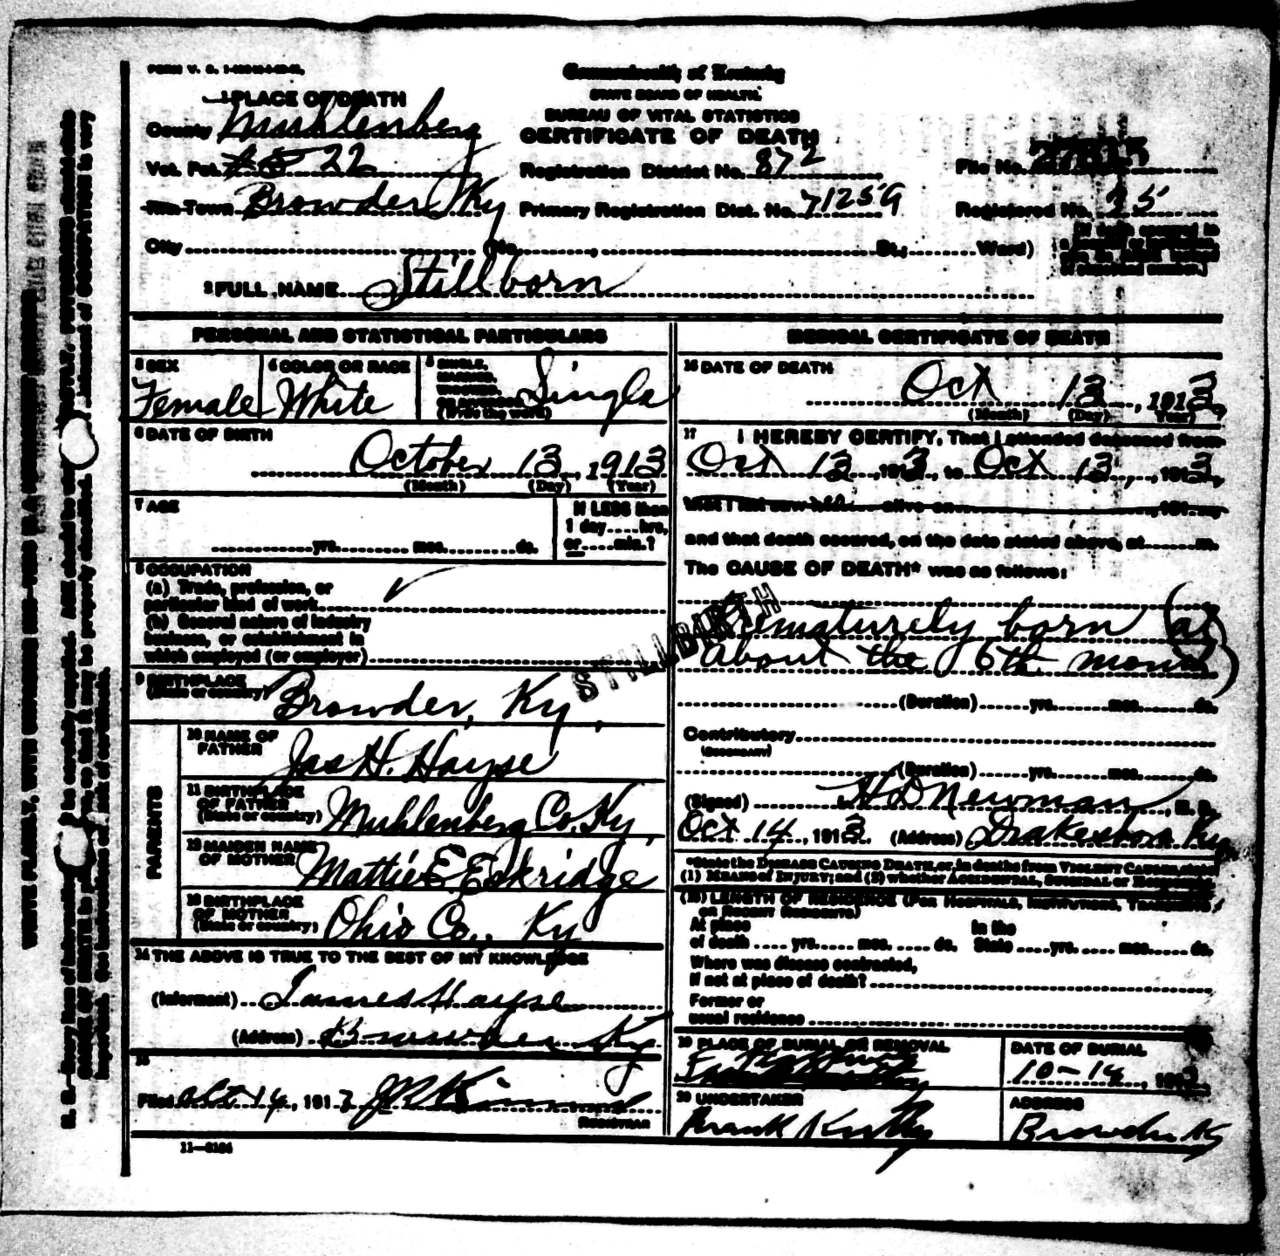 Commonwealth of Kentucky
STATE BOARD OF HEALTH.
BUREAU OF VITAL STATISTICS
CERTIFICATE OF DEATH
1 PLACE OF DEATH
County Muhlenberg
Vot. Pct. 22
Registration District No. 872
File No.
Town Browder Ky
Primary Registration Dist. No. 71259
Registered No. 25
City (No. , St.; Ward)
2 FULL NAME Stillborn
PERSONAL AND STATISTICAL PARTICULARS
3 SEX Female
4 COLOR OR RACE White
5 SINGLE, MARRIED, Single
6 DATE OF BIRTH
October 13, 1913
(Month) (Day) (Year)
7 AGE
yrs. mos. ds.
If LESS than
1 day hrs.
or min.?
8 OCCUPATION
(a) Trade, profession, or
particular kind of work
(b) General nature of industry
business, or establishment in
which employed (or employer)
9 BIRTHPLACE
(State or country) Browder, Ky,
PARENTS
10 NAME OF
FATHER Jas H. Hayse
11 BIRTHPLACE
OF FATHER
(State or country) Muhlenberg Co. Ky,
12 MAIDEN NAME
OF MOTHER Mattie E Eskridge
13 BIRTHPLACE
OF MOTHER
(State or country) Ohio Co., Ky
14 THE ABOVE IS TRUE TO THE BEST OF MY KNOWLEDGE
(Informant) James Hayse
(Address) Browder Ky
15
Filed Oct 14, 1913
REGISTRAR
11—3184
MEDICAL CERTIFICATE OF DEATH
16 DATE OF DEATH
Oct 13, 1913
(Month) (Day) (Year)
17 I HEREBY CERTIFY, That I attended deceased from
Oct 13, 1913, to Oct 13, 1913,
that I last saw alive on , 191
and that death occured, on the date stated above, at m.
The CAUSE OF DEATH* was as follows:
STILLBIRTH
Prematurely born (at
about the 6th month)
(Duration) yrs. mos. ds.
Contributory
(SECONDARY)
(Duration) yrs. mos. ds.
(Signed) H D Newman, M. D.
Oct 14, 1913. (Address) Drakesboro Ky
*State the DISEASE CAUSING DEATH, or, in deaths from VIOLENT CAUSES, state
(1) MEANS OF INJURY; and (2) whether ACCIDENTAL, SUICIDAL or HOMICIDAL.
(18) LENGTH OF RESIDENCE (FOR HOSPITALS, INSTITUTIONS, TRANSIENTS,
OR RECENT RESIDENTS)
At place In the
of death yrs. mos. ds. State yrs. mos. ds.
Where was disease contracted,
If not at place of death?
Former or
usual residence
19 PLACE OF BURIAL OR REMOVAL
DATE OF BURIAL
10-14, 191
20 UNDERTAKER
Frank
ADDRESS
Browder Ky